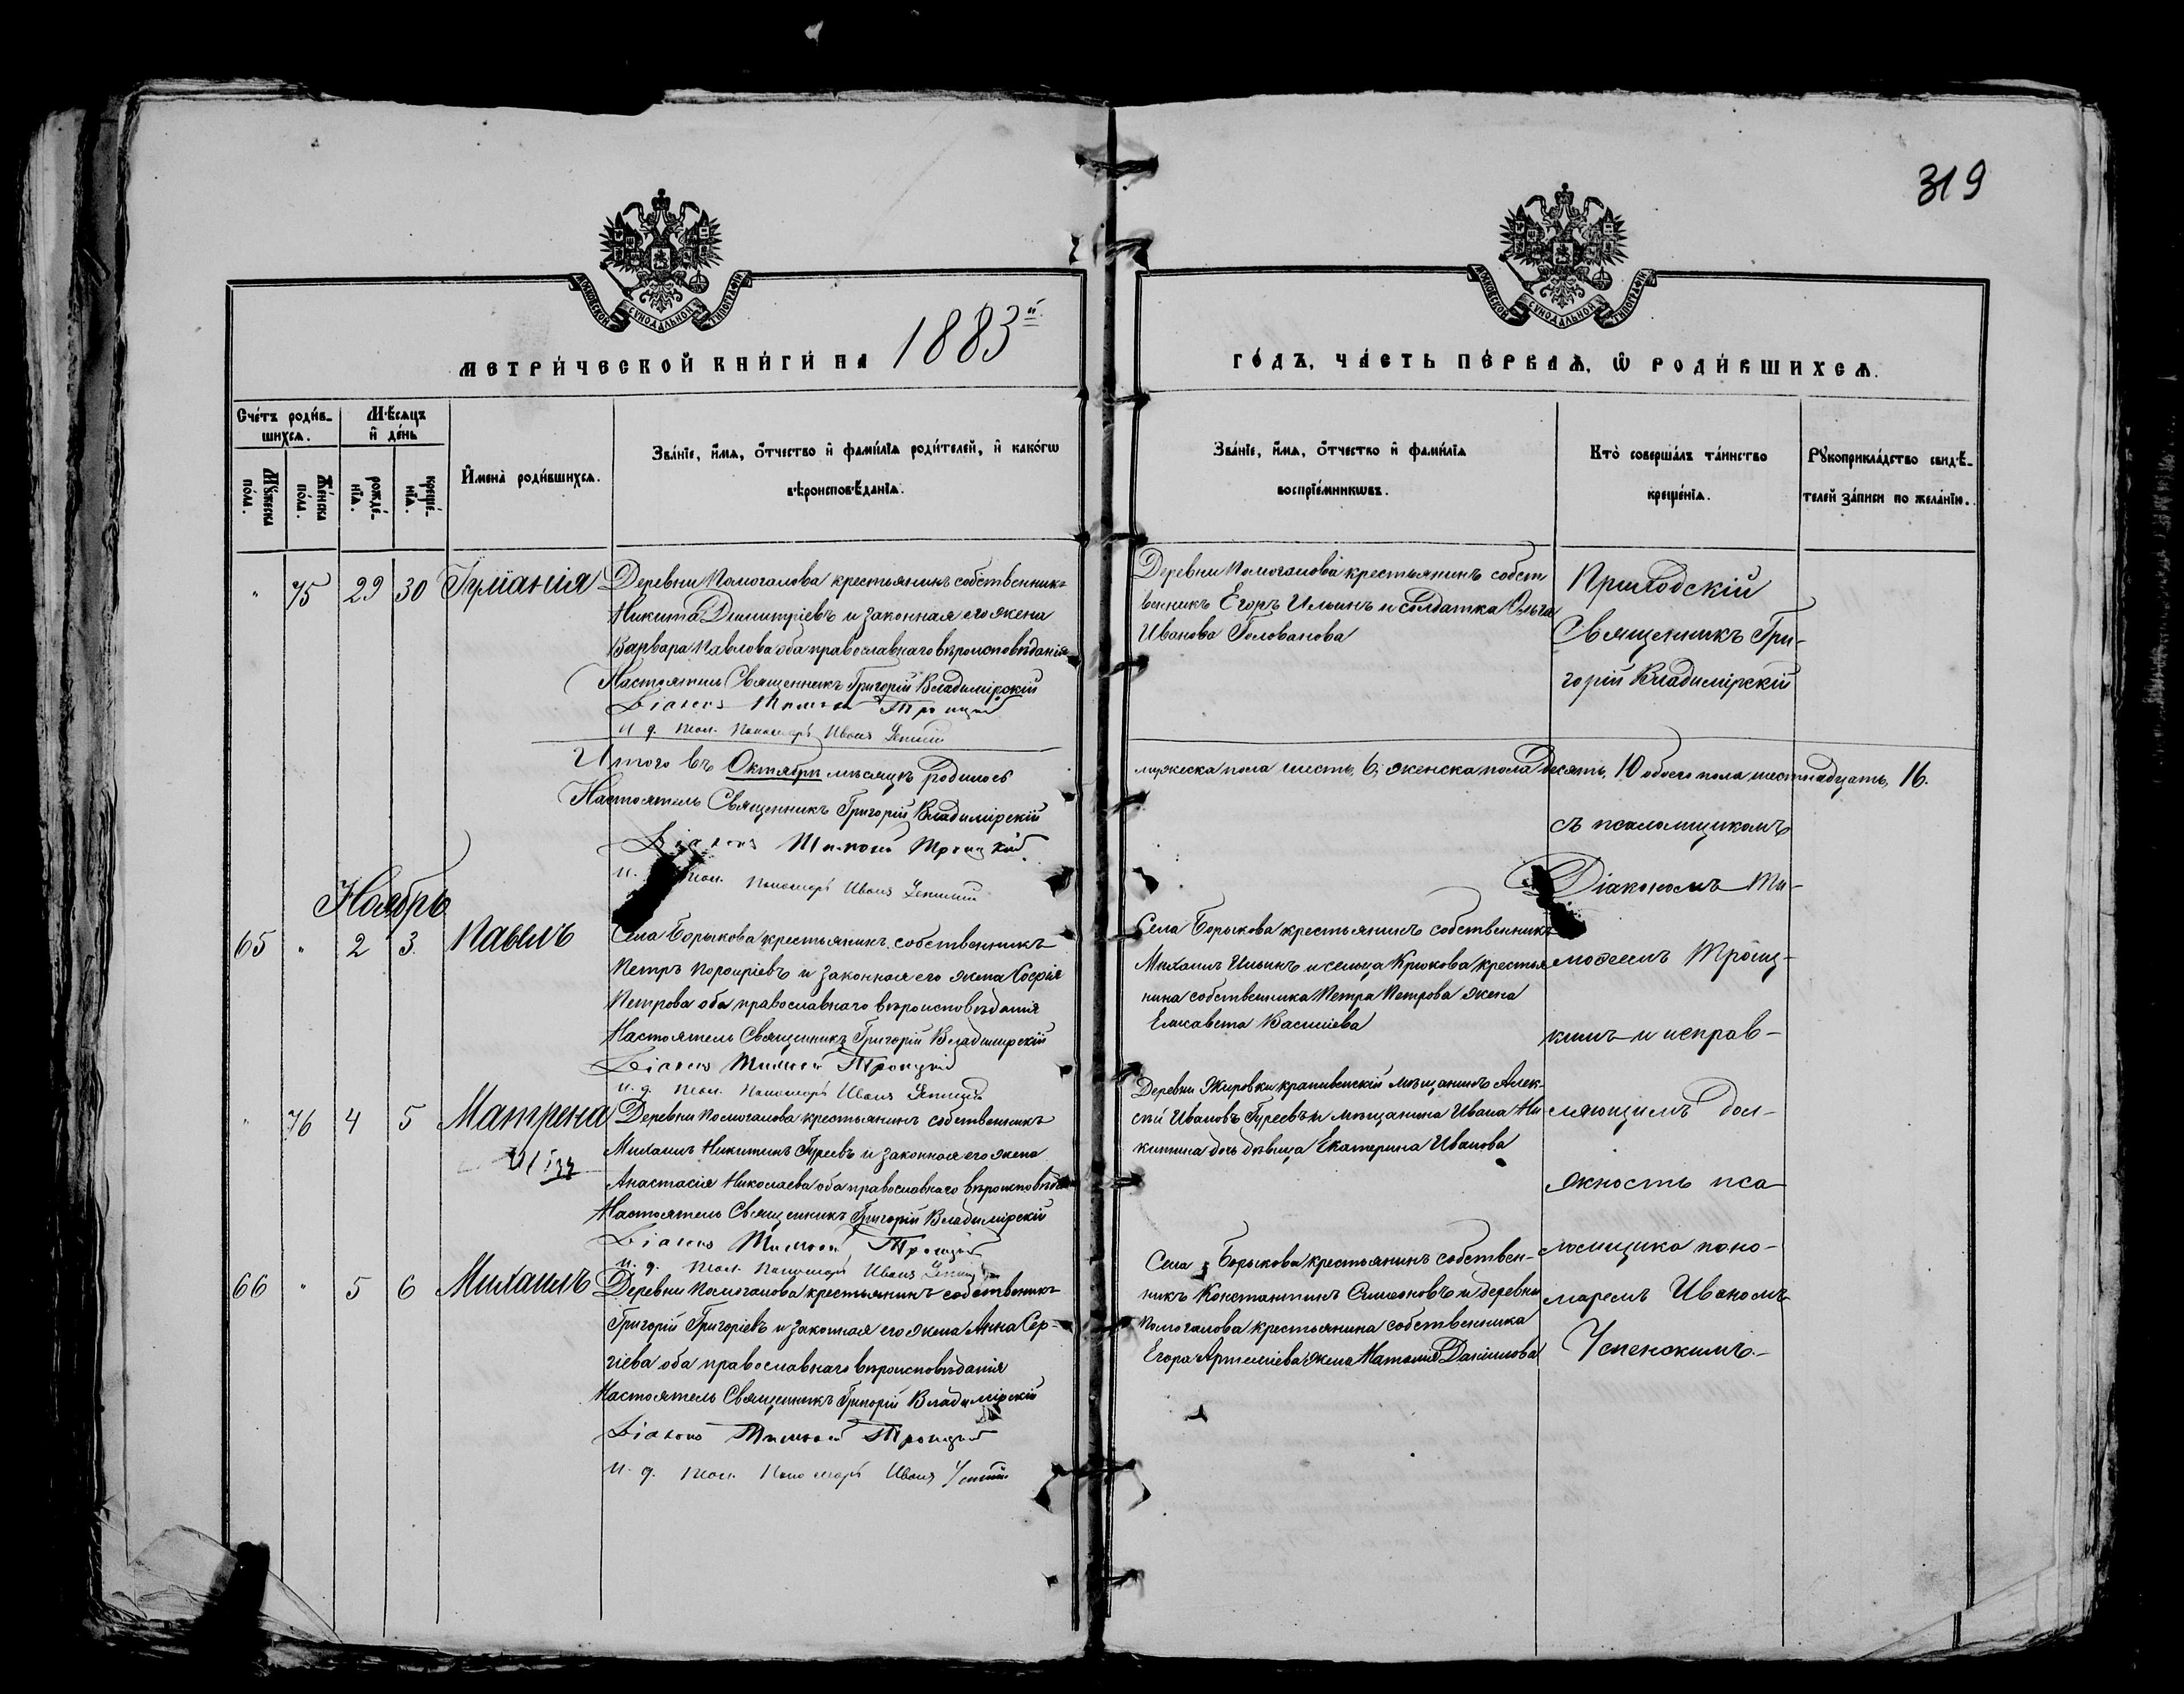 319
МОСКОВСКОЙ СѴНОДАЛЬНОЙ ТИПОГРАФІИ
МОСКОВСКОЙ СѴНОДАЛЬНОЙ ТИПОГРАФІИ
МЕТРИ́ЧЕСКОЙ КНИ́ГИ НА 1883й
ГО́ДЪ, ЧА́СТЬ ПЕ́РВАѦ, Ѡ҆ РОДИ́ВШИХСѦ.
Сче́тъ роди́в-
шихсѧ.
Мꙋ́жеска по́ла.
Же́нска по́ла.
Мѣ́сѧцъ
и҆ де́нь
рожде́-нїѧ.
креще́-нїѧ.
И҆мена̀ роди́вшихсѧ.
Зва́нїе, и҆́мѧ, ѻ҆́тчество и҆ фами́лїѧ роди́телей, и҆ како́гѡ
вѣроисповѣ́данїѧ.
Зва́нїе, и҆́мѧ, ѻ҆́тчество и҆ фами́лїѧ
воспрїе́мникѡвъ.
Кто̀ соверша́лъ та́инство
креще́нїѧ.
Рꙋкоприкла́дство свидѣ́-
телей за́писи по жела́нїю.
" 75 29 30 Іуліанія
Деревни Помогалова крестьянинъ собственник-
Никита Димитріевъ и законная его жена
Варвара Павлова оба православнаго вѣроисповѣданія
Настоятель Священникъ Григорій Владимірскій
Діаконъ Тимоѳей Троицкій
и. д. псал. Пономарь Иванъ
Деревни Помогалова крестьянинъ собст
венникъ Егоръ Ильинъ и солдатка Ольга
Иванова Голованова
Приходскій
Священникъ Гри-
горій Владимірскій
Итого въ Октябрѣ мѣсяцѣ родилось
мужеска пола шесть, 6, женска пола десять, 10 обоего пола шестнадцать, 16.
Настоятель Священникъ Григорій Владимірскій
Діаконъ Тимоѳей Троицкій
и. псал. Пономарь Иванъ
съ псаломщикомъ
Діакономъ Ти-
моѳеемъ Троиц-
кимъ и исправ-
ляющимъ дол-
жность пса-
ломщика поно-
маремъ Иваномъ
Успенскимъ.-
Ноябрь
65 " 2 3. Павелъ
Села Борыкова крестьянинъ собственникъ
Петръ Порфиріевъ и законная его жена Софія
Петрова оба православнаго вѣроисповѣданія
Настоятель Священникъ Григорій Владимірскій
Діаконъ Тимоѳей Троицкій
и. д. псал. Пономарь Иванъ
Села Борыкова крестьянинъ собственникъ
Михаилъ Ильинъ и сельца Крюкова крестья
нина собственника Петра Петрова жена
Елисавета Василіева
" 76 4 5 Матрена
Деревни Помогалова крестьянинъ собственникъ
Михаилъ Никитинъ Гуреевъ и законная его жена
Анастасія Николаева оба православнаго вѣроисповѣда
Настоятель Священникъ Григорій Владимірскій
Діаконъ Тимоѳей Троицкій
и. д. псал. Пономарь Иванъ
Деревни Жировки крапивенскій мѣщанинъ Алек-
сѣй Ивановъ Гуреевъ и мѣщанина Ивана Ни-
китина дочь дѣвица Екатерина Иванова
66 " 5 6 Михаилъ
Деревни Помогалова крестьянинъ собственникъ
Григорій Григоріевъ и законная его жена Анна Сер-
гіева оба православнаго вѣроисповѣданія
Настоятель Священникъ Григорій Владимірскій
Діаконъ Тимоѳей Троицкій
и. д. псал. Пономарь Иванъ
Села Борыкова крестьянинъ собствен-
никъ Константинъ Симеоновъ и деревни
Помогалова крестьянина собственника
Егора Артеміева жена Наталія Даніилова